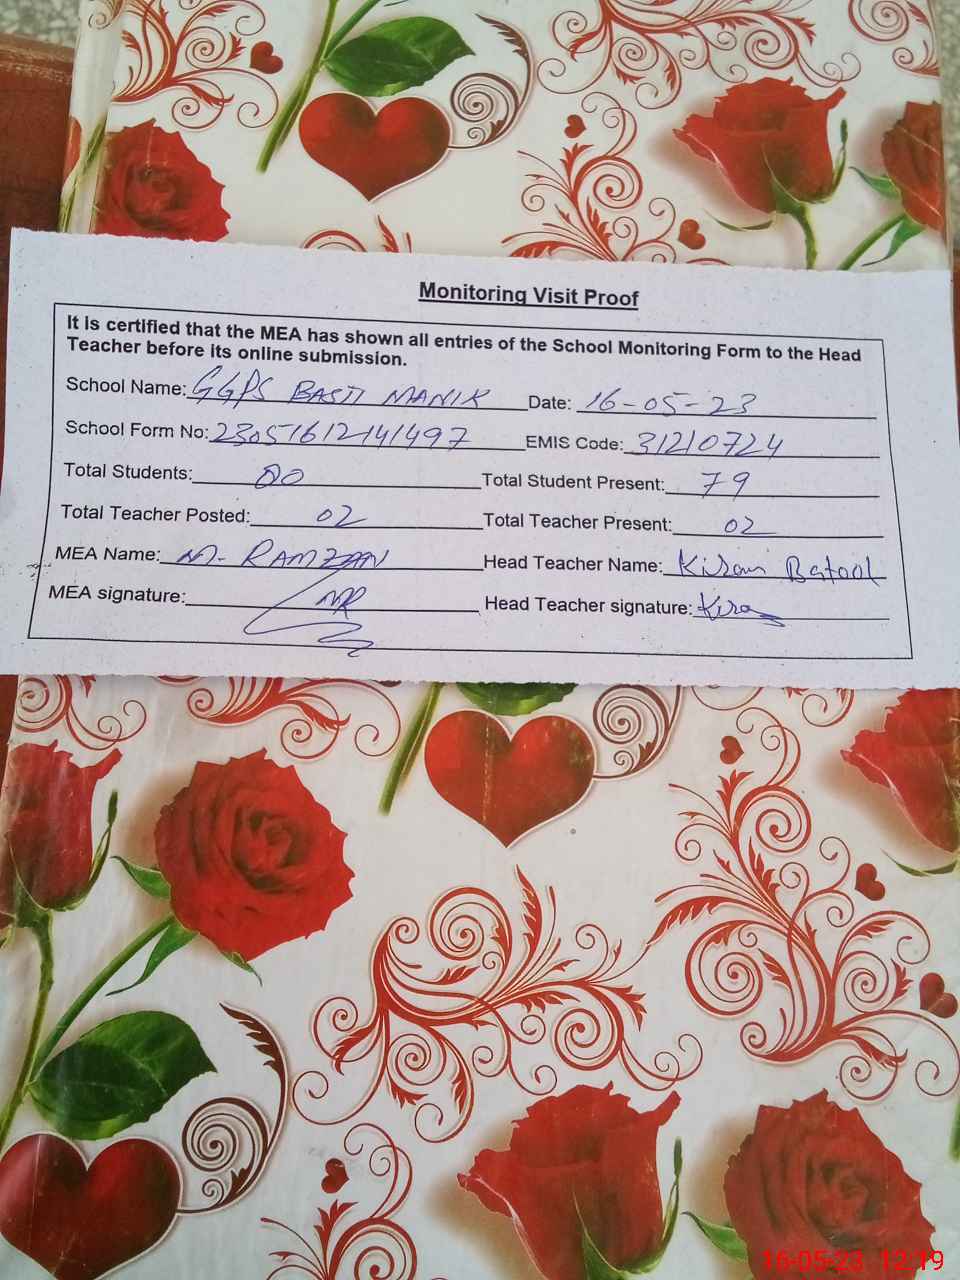 Monitoring Visit Proof
It is certified that the MEA has shown all entries of the School Monitoring Form to the Head
Teacher before its online submission.
School Name: GGPS BASTI MANIK Date: 16-05-23
School Form No: 23051612141497 EMIS Code: 31210724
Total Students: 80 Total Student Present: 79
Total Teacher Posted: 02 Total Teacher Present: 02
MEA Name: M. RAMZAN Head Teacher Name: Kiran Batool
MEA signature: MR Head Teacher signature: Kiran
16-05-23 12:19